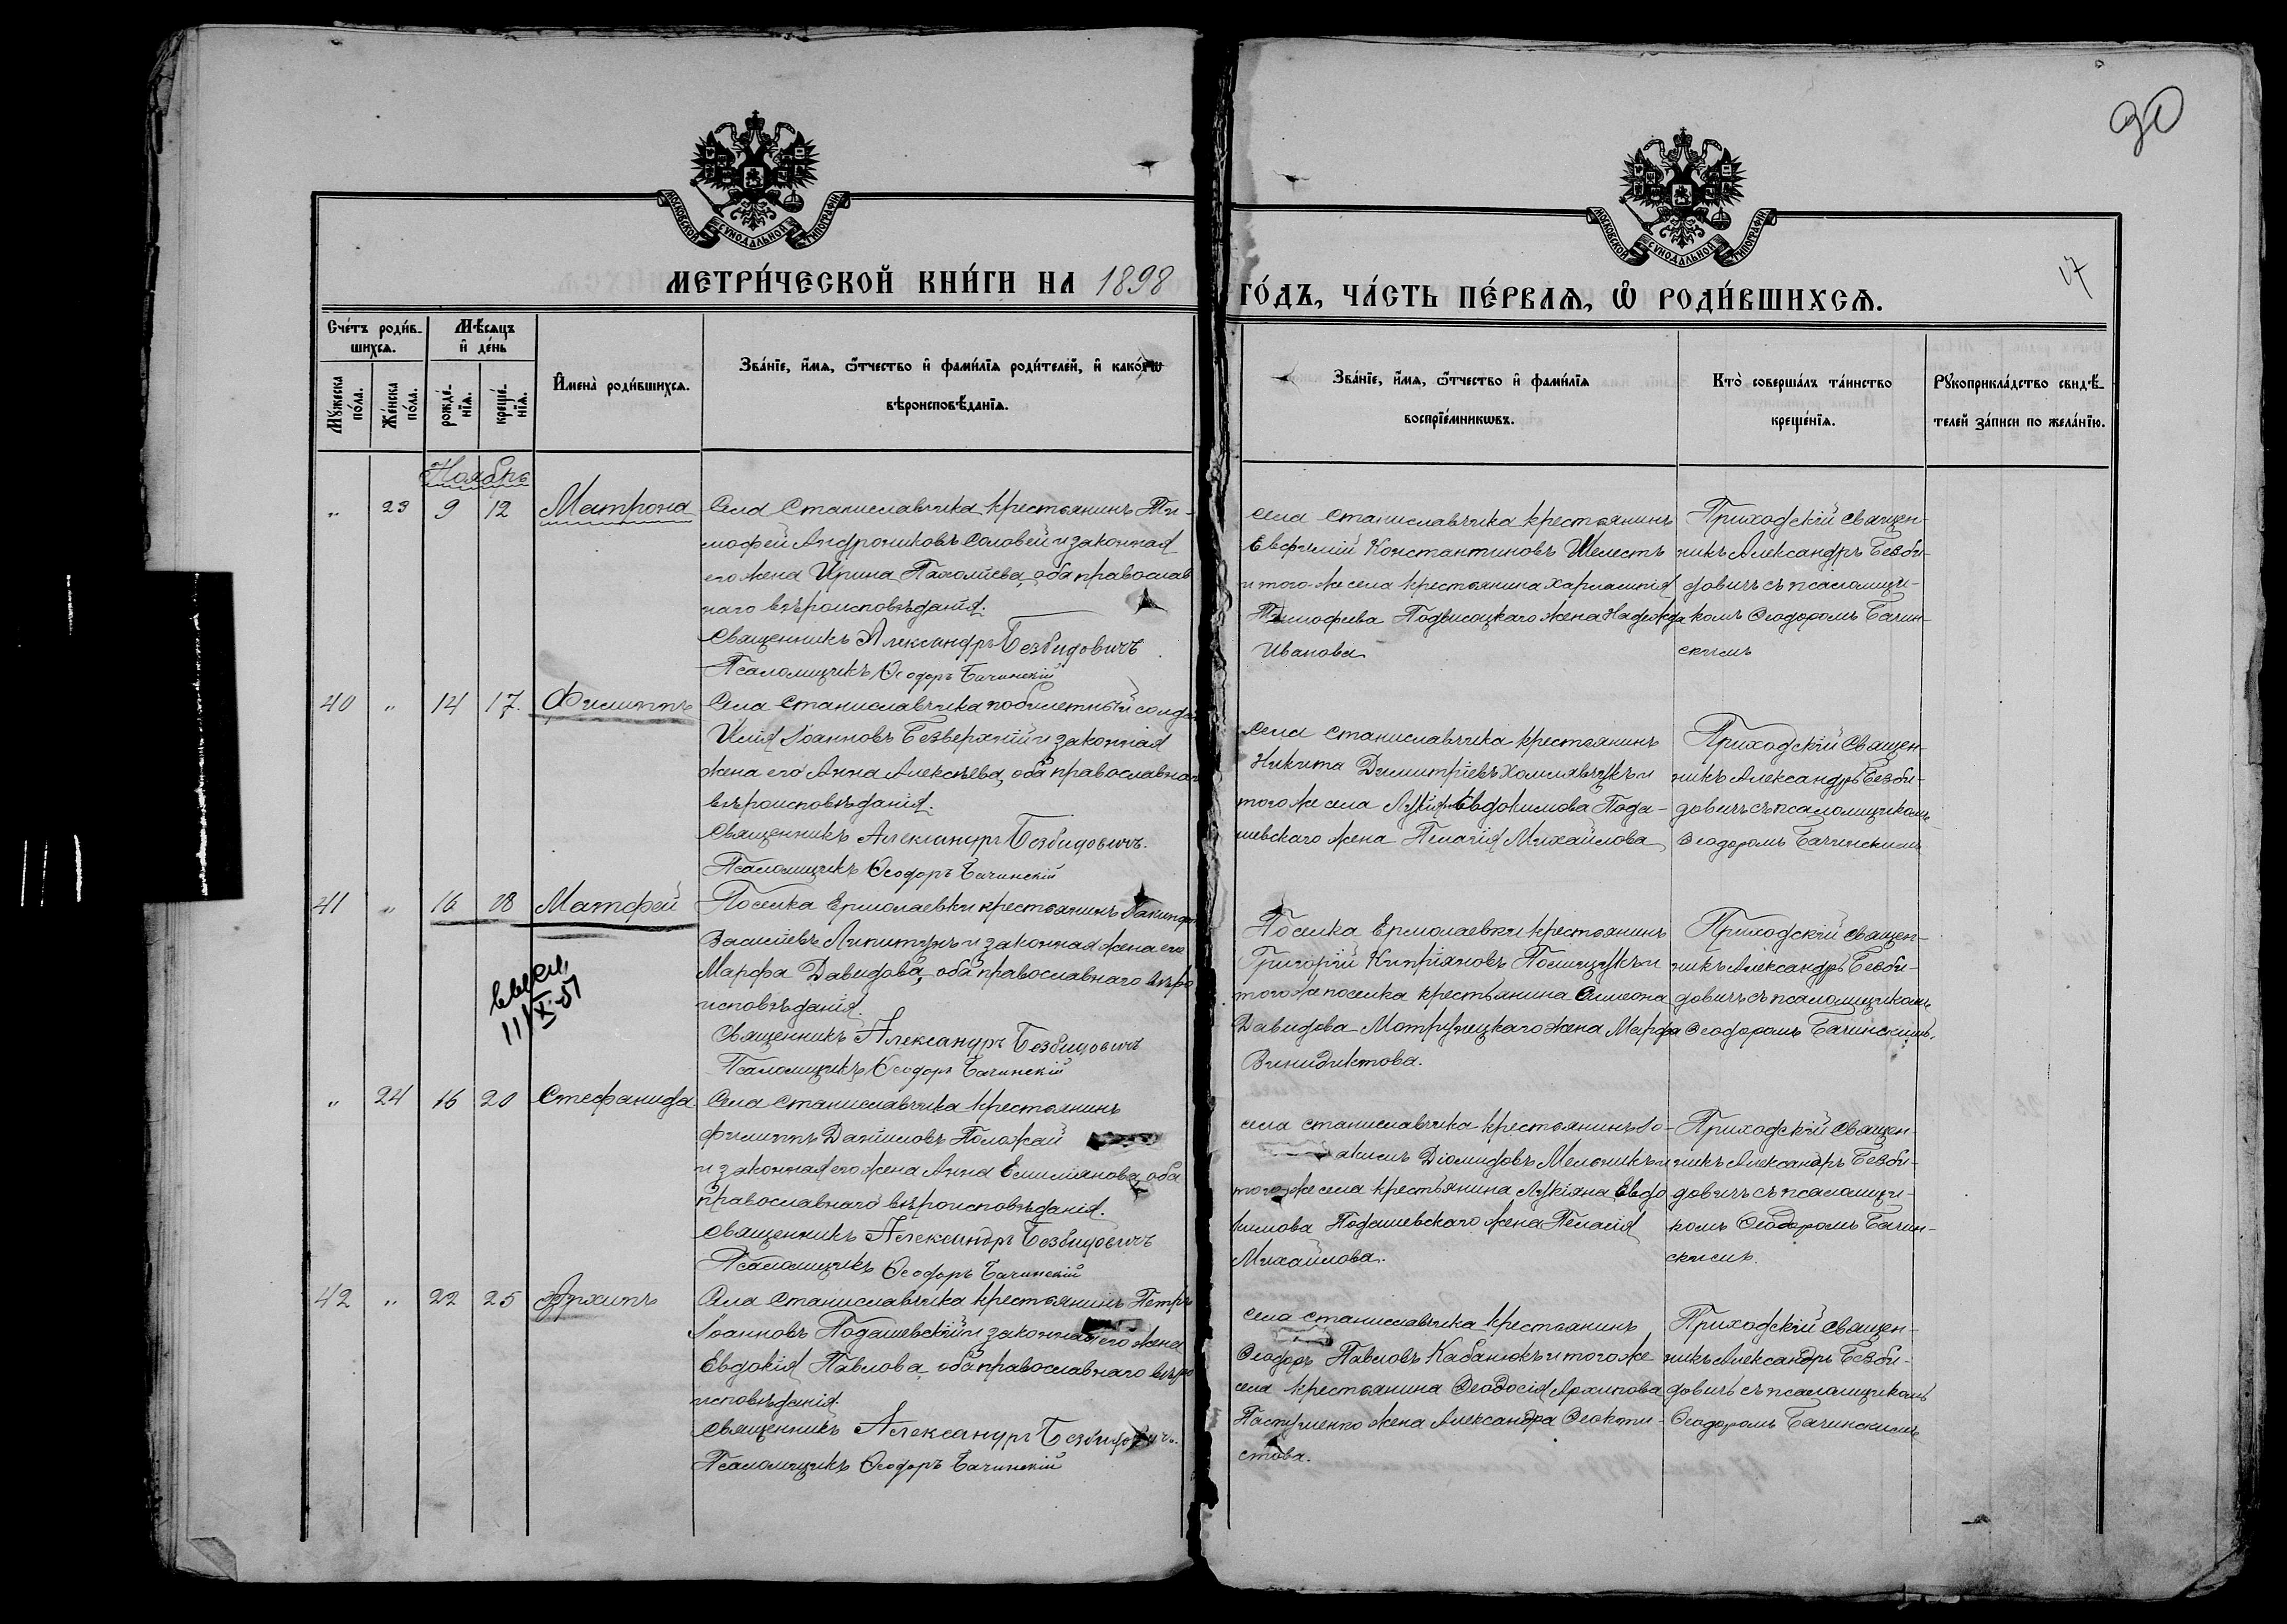 90
17
МОСКОВСКОЙ СУНОДАЛЬНОЙ ТИПОГРАФІИ
МОСКОВСКОЙ СУНОДАЛЬНОЙ ТИПОГРАФІИ
МЕТРИ́ЧЕСКОЙ КНИ́ГИ НА 1898 ГО́ДЪ, ЧА́СТЬ ПЕ́РВАѦ, Ѡ҆ РОДИ́ВШИХСѦ.
Сче́тъ роди́в-
шихсѧ.
Мѣ́сяцъ
и҆ де́нь
Мꙋ́жеска
по́ла.
Же́нска
по́ла.
рожде́-
нїѧ.
креще́-
нїѧ.
И҆мена̀ роди́вшихсѧ.
Зва́нїе, и҆́мѧ, ѻ҆́тчество и҆ фами́лїѧ роди́телей, и҆ како́гѡ
вѣроисповѣ́данїѧ.
Зва́нїе, и҆́мѧ, ѻ҆́тчество и҆ фами́лїѧ
воспрїе́мникѡвъ.
Кто̀ соверша́лъ та́инство
креще́нїѧ.
Рꙋкоприкла́дство свидѣ́-
телей за́писи по жела́нїю.
Ноябрь
" 23 9 12 Матрона
Села Станиславчика крестьянинъ Ти-
мофей Андрониковъ Соловей и законная
его жена Ирина Пахоміева, оба православ
наго вѣроисповѣданія.
Священникъ Александръ Безбидовичъ
Псаломщикъ Ѳеодоръ Бачинскій
села Станиславчика крестьянинъ
Евфимій Константиновъ Шелестъ
и того же села крестьянина Харлампія
Тимофеева Подвисоцкаго жена Надежда
Иванова
Приходскій священ-
никъ Александръ Безби-
довичъ съ псаломщи-
комъ Ѳеодоромъ Бачин-
скимъ
40 " 14 17. Филиппъ
Села Станиславчика побилетный солда
Илія Іоанновъ Безверхній и законная
жена его Анна Алексѣева, оба православнаго
вѣроисповѣданія.
Священникъ Александръ Безбидовичъ.
Псаломщикъ Ѳеодоръ Бачинскій
села Станиславчика крестьянинъ
Никита Димитріевъ и
того же села Евдокимова Пода-
шевскаго жена Пелагія Михайлова
Приходскій священ-
никъ Александръ Безби-
довичъ съ псаломщикомъ
Ѳеодоромъ Бачинскимъ
41 " 16 18 Матфей
Поселка Ермолаевки крестьянинъ
Василіевъ и законная жена его
Марфа Давидова, оба православнаго вѣро
исповѣданія.
Священникъ Александръ Безбидовичъ
Псаломщикъ Ѳеодоръ Бачинскій
11/X-51
Поселка Ермолаевки крестьянинъ
Григорій Кипріяновъ Полищукъ и
того же поселка крестьянина Симеона
Давидова жена Марфа
Винидиктова.
Приходскій священ-
никъ Александръ Безби-
довичъ съ псаломщикомъ
Ѳеодоромъ Бачинскимъ.
" 24 16 20 Стефанида
Села Станиславчика крестьянинъ
Филиппъ Даніиловъ Положай
и законная его жена Анна Емиліянова, оба
православнаго вѣроисповѣданія.
Священникъ Александръ Безбидовичъ
Псаломщикъ Ѳеодоръ Бачинскій
села Станиславчика крестьянинъ Іо-
акимъ Діомидовъ Мельникъ и
того же села крестьянина Лукіяна Евдо
кимова Подашевскаго жена Пелагія
Михайлова.
Приходскій священ-
никъ Александръ Безби-
довичъ съ псаломщи-
комъ Ѳеодоромъ Бачин-
скимъ.
42 " 22 25 Архипъ
Села Станиславчика крестьянинъ Петръ
Іоанновъ Подашевскій и законная его жена
Евдокія Павлова, оба православнаго вѣро
исповѣданія.
Священникъ Александръ Безбидовичъ.
Псаломщикъ Ѳеодоръ Бачинскій
села Станиславчика крестьянинъ
Ѳеодоръ Павловъ Кабанюкъ и того же
села крестьянина Ѳеодосія Архипова
Пастушенко жена Александра Ѳеокти-
стова.
Приходскій священ-
никъ Александръ Безби-
довичъ съ псаломщикомъ
Ѳеодоромъ Бачинскимъ